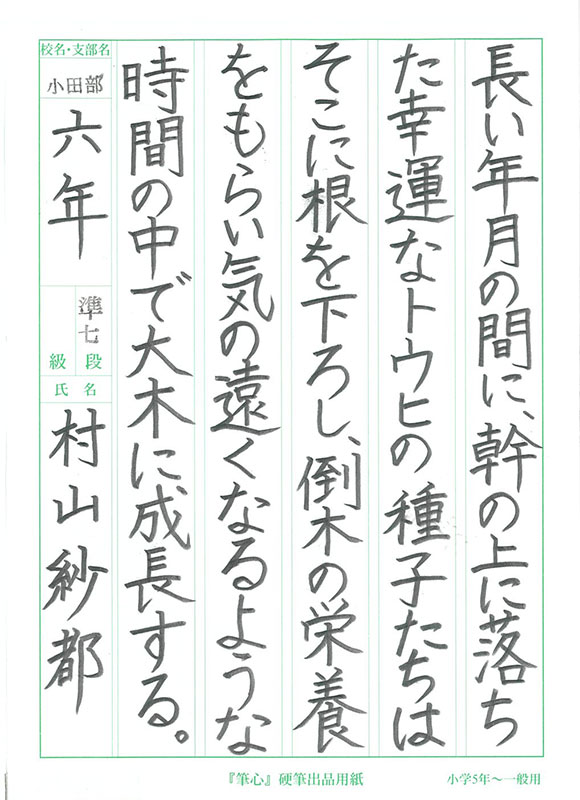 長い年月の間に、幹の上に落ち
た幸運なトウヒの種子たちは
そこに根を下ろし、倒木の栄養
をもらい気の遠くなるような
時間の中で大木に成長する。
校名・支部名
小田部
六年
準七
段
級
氏名
村山紗都
『筆心』硬筆出品用紙
小学5年〜一般用